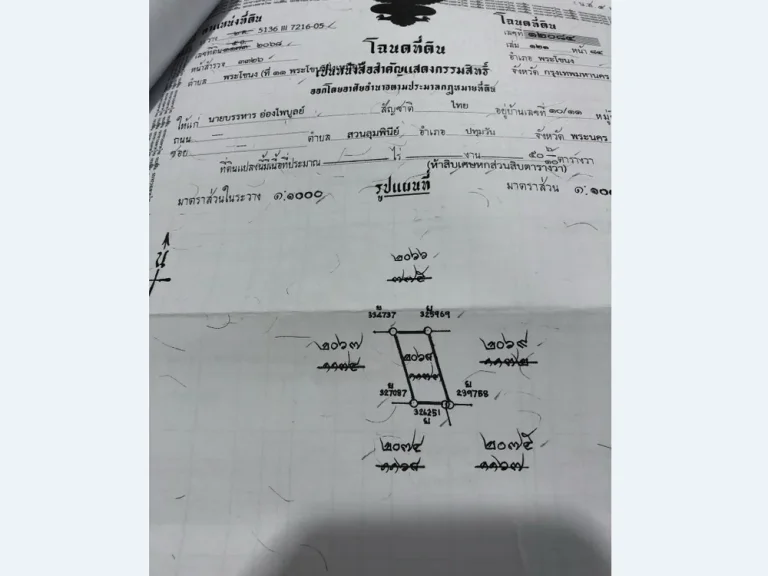 โฉนดที่ดิน
5136 III 7216-05
เลขที่ ๑๒๐๘๔
โฉนดที่ดิน
เลขที่ดิน ๒๐๖๘
เล่ม ๑๒๑ หน้า ๘๔
หน้าสำรวจ ๓๓๒๖
อำเภอ พระโขนง
เป็นหนังสือสำคัญแสดงกรรมสิทธิ์
ตำบล พระโขนง (ที่ ๑๑
จังหวัด กรุงเทพมหานคร
ออกโดยอาศัยอำนาจตามประมวลกฎหมายที่ดิน
ให้แก่ นายบรรหาร ย่องไพบูลย์ สัญชาติ ไทย อยู่บ้านเลขที่ ๑๐/๑๑ หมู่
ถนน — ตำบล สวนลุมพินีย์ อำเภอ ปทุมวัน จังหวัด พระนคร
ซอย —
ที่ดินแปลงนี้มีเนื้อที่ประมาณ — ไร่ — งาน ๕๐ ๖/๑๐ ตารางวา
(ห้าสิบเศษหกส่วนสิบตารางวา)
มาตราส่วนในระวาง ๑:๑๐๐๐ รูปแผนที่ มาตราส่วน ๑:
น
๒๐๖๖
334737 325969
๒๐๖๗ ๒๐๖๘ ๒๐๖๙
327087 239788
324251
๒๐๗๔ ๒๐๗๕